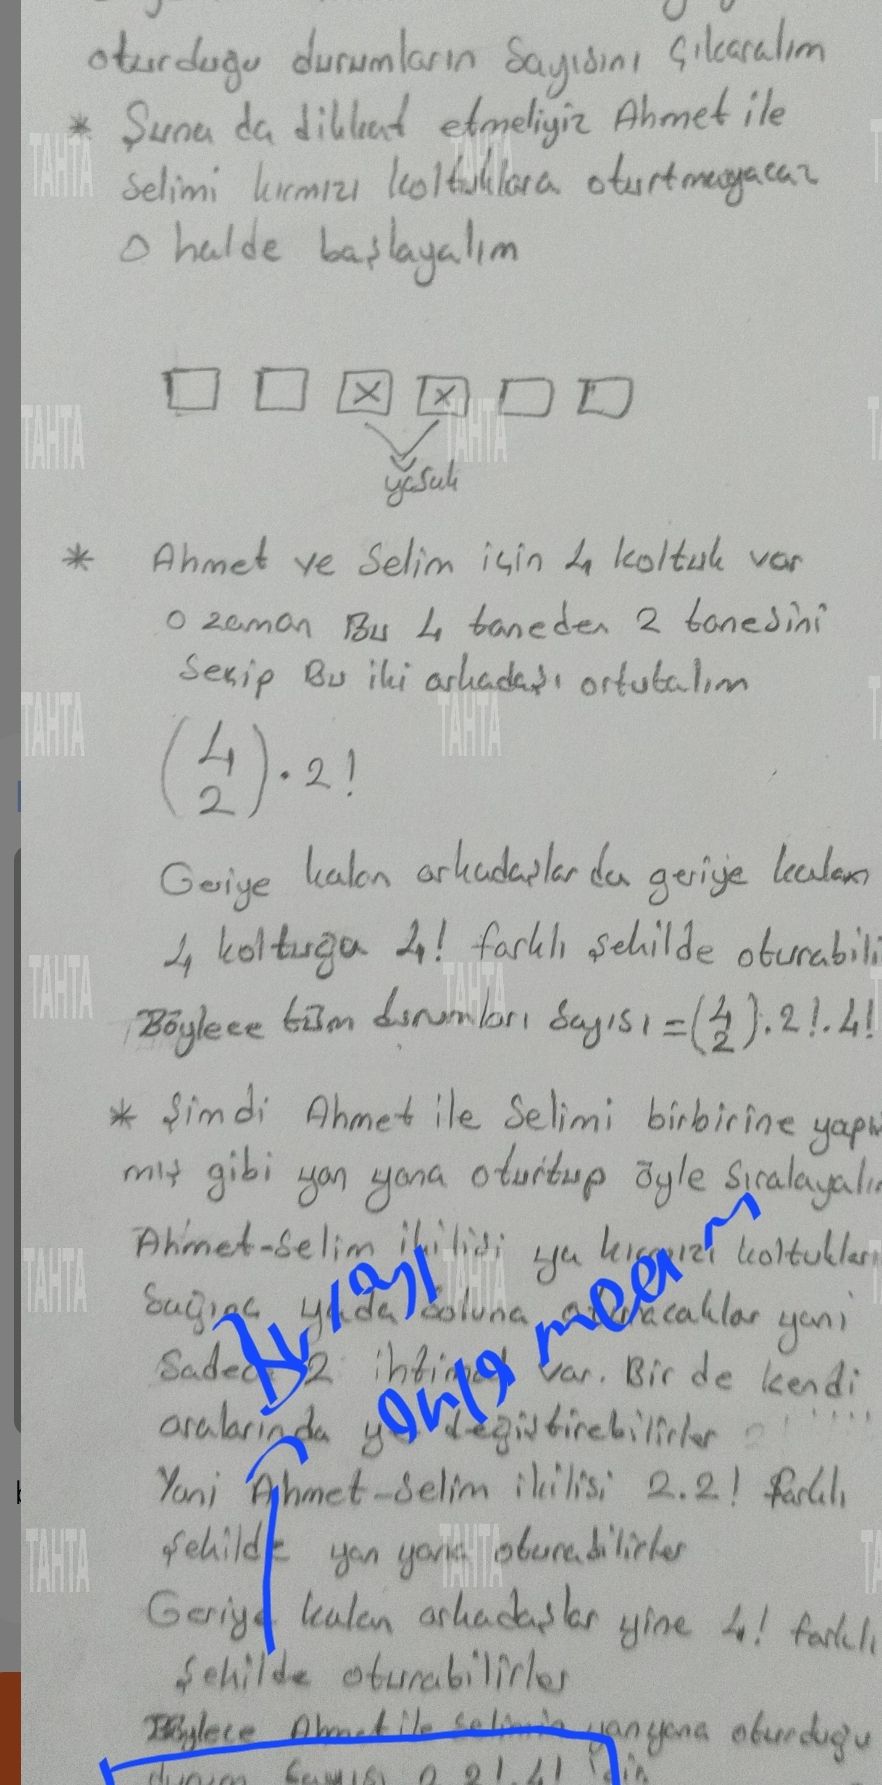 oturduğu durumların Sayısını Çıkaralım
* Şuna da dikkat etmeliyiz Ahmet ile
Selimi kırmızı koltuklara oturtmayacaz
O halde başlayalım
X X
yasak
* Ahmet ve Selim için 4 koltuk var
O zaman Bu 4 taneden 2 tanesini
Seçip Bu iki arkadaşı ortutalım
(4 2) . 2!
Geriye kalan arkadaşlar da geriye kalan
4 koltuğa 4! farklı şekilde oturabili
Böylece tüm durumları Sayısı = (4 2).2!.4!
* Şimdi Ahmet ile Selimi birbirine yapış
mış gibi yan yana oturtup öyle Sıralayalı
Ahmet-Selim ikilisi ya kırmızı koltukları
Sağına yada Soluna oturacaklar yani
Sadece 2 ihtimal var. Bir de kendi
aralarında yer değiştirebilirler
Bu kısmı
anlamadım
Yani Ahmet-Selim ikilisi 2.2! farklı
şekilde yan yana oturabilirler
Geriye kalan arkadaşlar yine 4! farklı
şekilde oturabilirler
Böylece Ahmet ile Selimin yanyana oturduğu
durum Sayısı 2.2!.4!
TAHTA
TAHTA
TAHTA
TAHTA
TAHTA
TAHTA
TAHTA
TAHTA
TAHTA
TAHTA
TAHTA
TAHTA